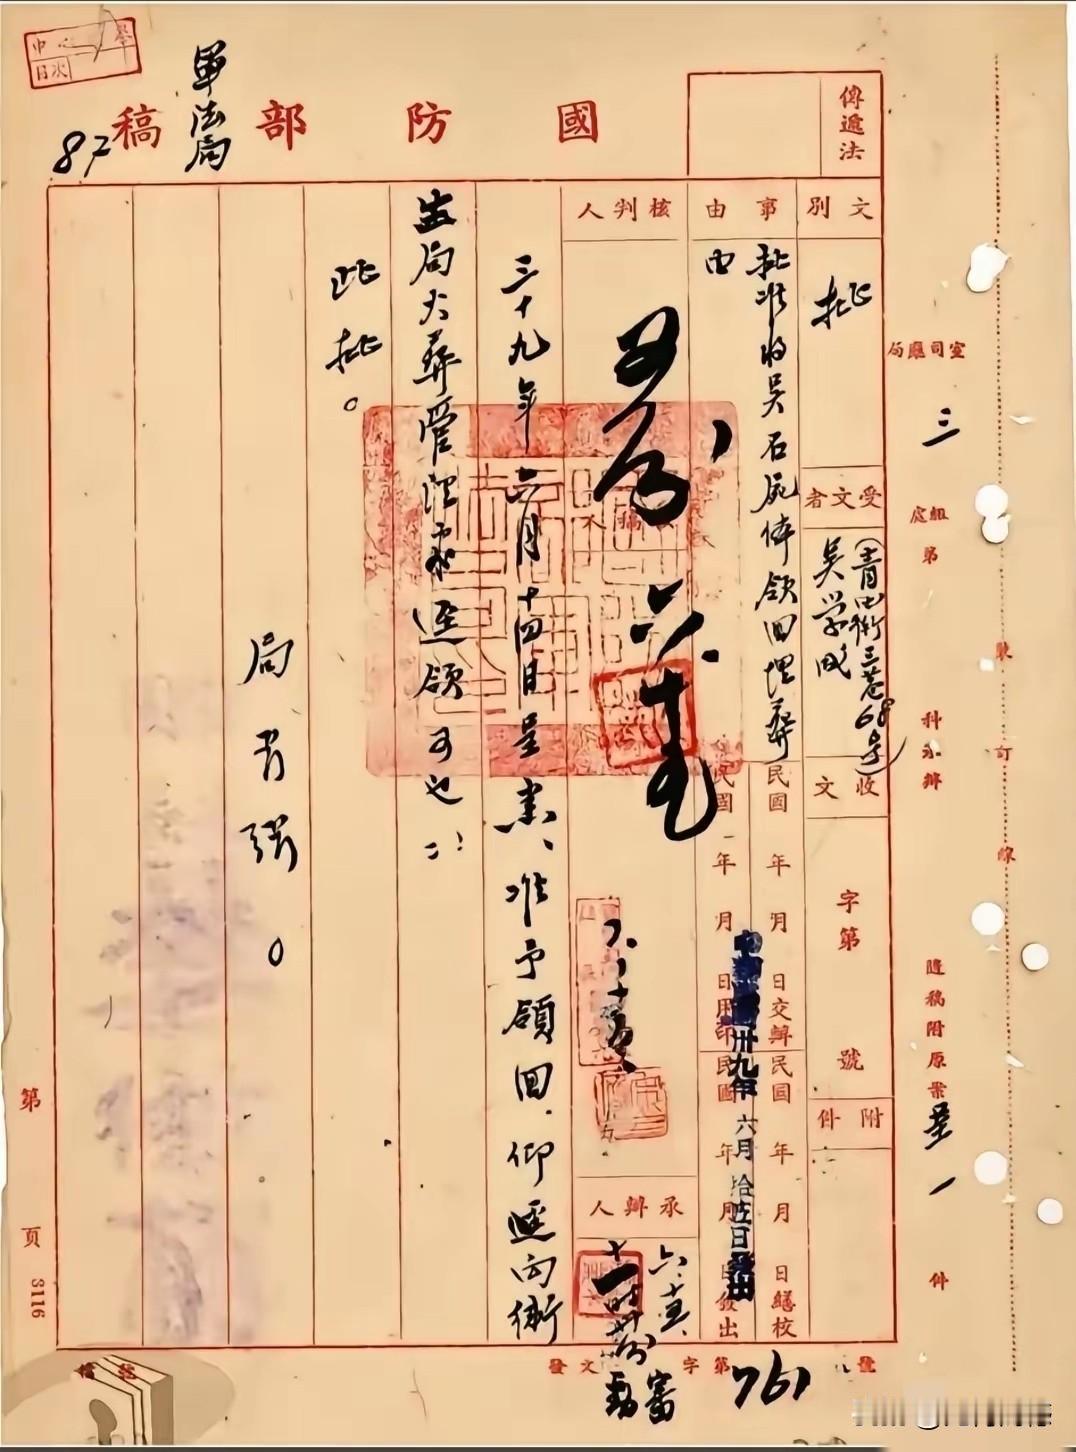 國防部稿
軍法局
87
傳遞法
文別
批
事由
批准將吳石屍体領回埋葬
由
核判人
受文者
(青田街三巷68号)
吳学成
收文
字第
號
附件
民國 年 月 日交辦
民國 年 月 日繕校
民國 年 月 日用印
民國 年 月 日發出
中華民國卅九年六月拾五日發出
承辦人
六.十五
三十九年六月十四日呈悉、准予領回.仰逕向衛
生局火葬管理處逕領可也
此批。
局長
室司廳局
三
組處
第
科承辦
隨稿附原案
件
裝
訂
線
第
頁
3116
發文
字第
761
號